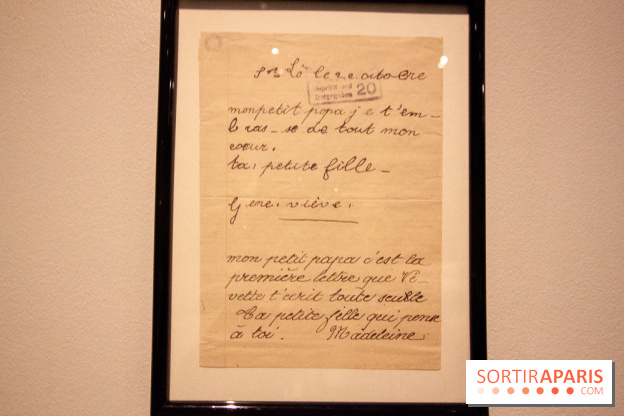 St Lô le 2 e octobre
20
mon petit papa je t'em-
bras-se de tout mon
coeur.
ta, petite fille-
Gene, viève,
mon petit papa c'est la
première lettre que Vi-
vette t'écrit toute seule
Ta petite fille qui pense
à toi. Madeleine.
SORTIRAPARIS
.COM